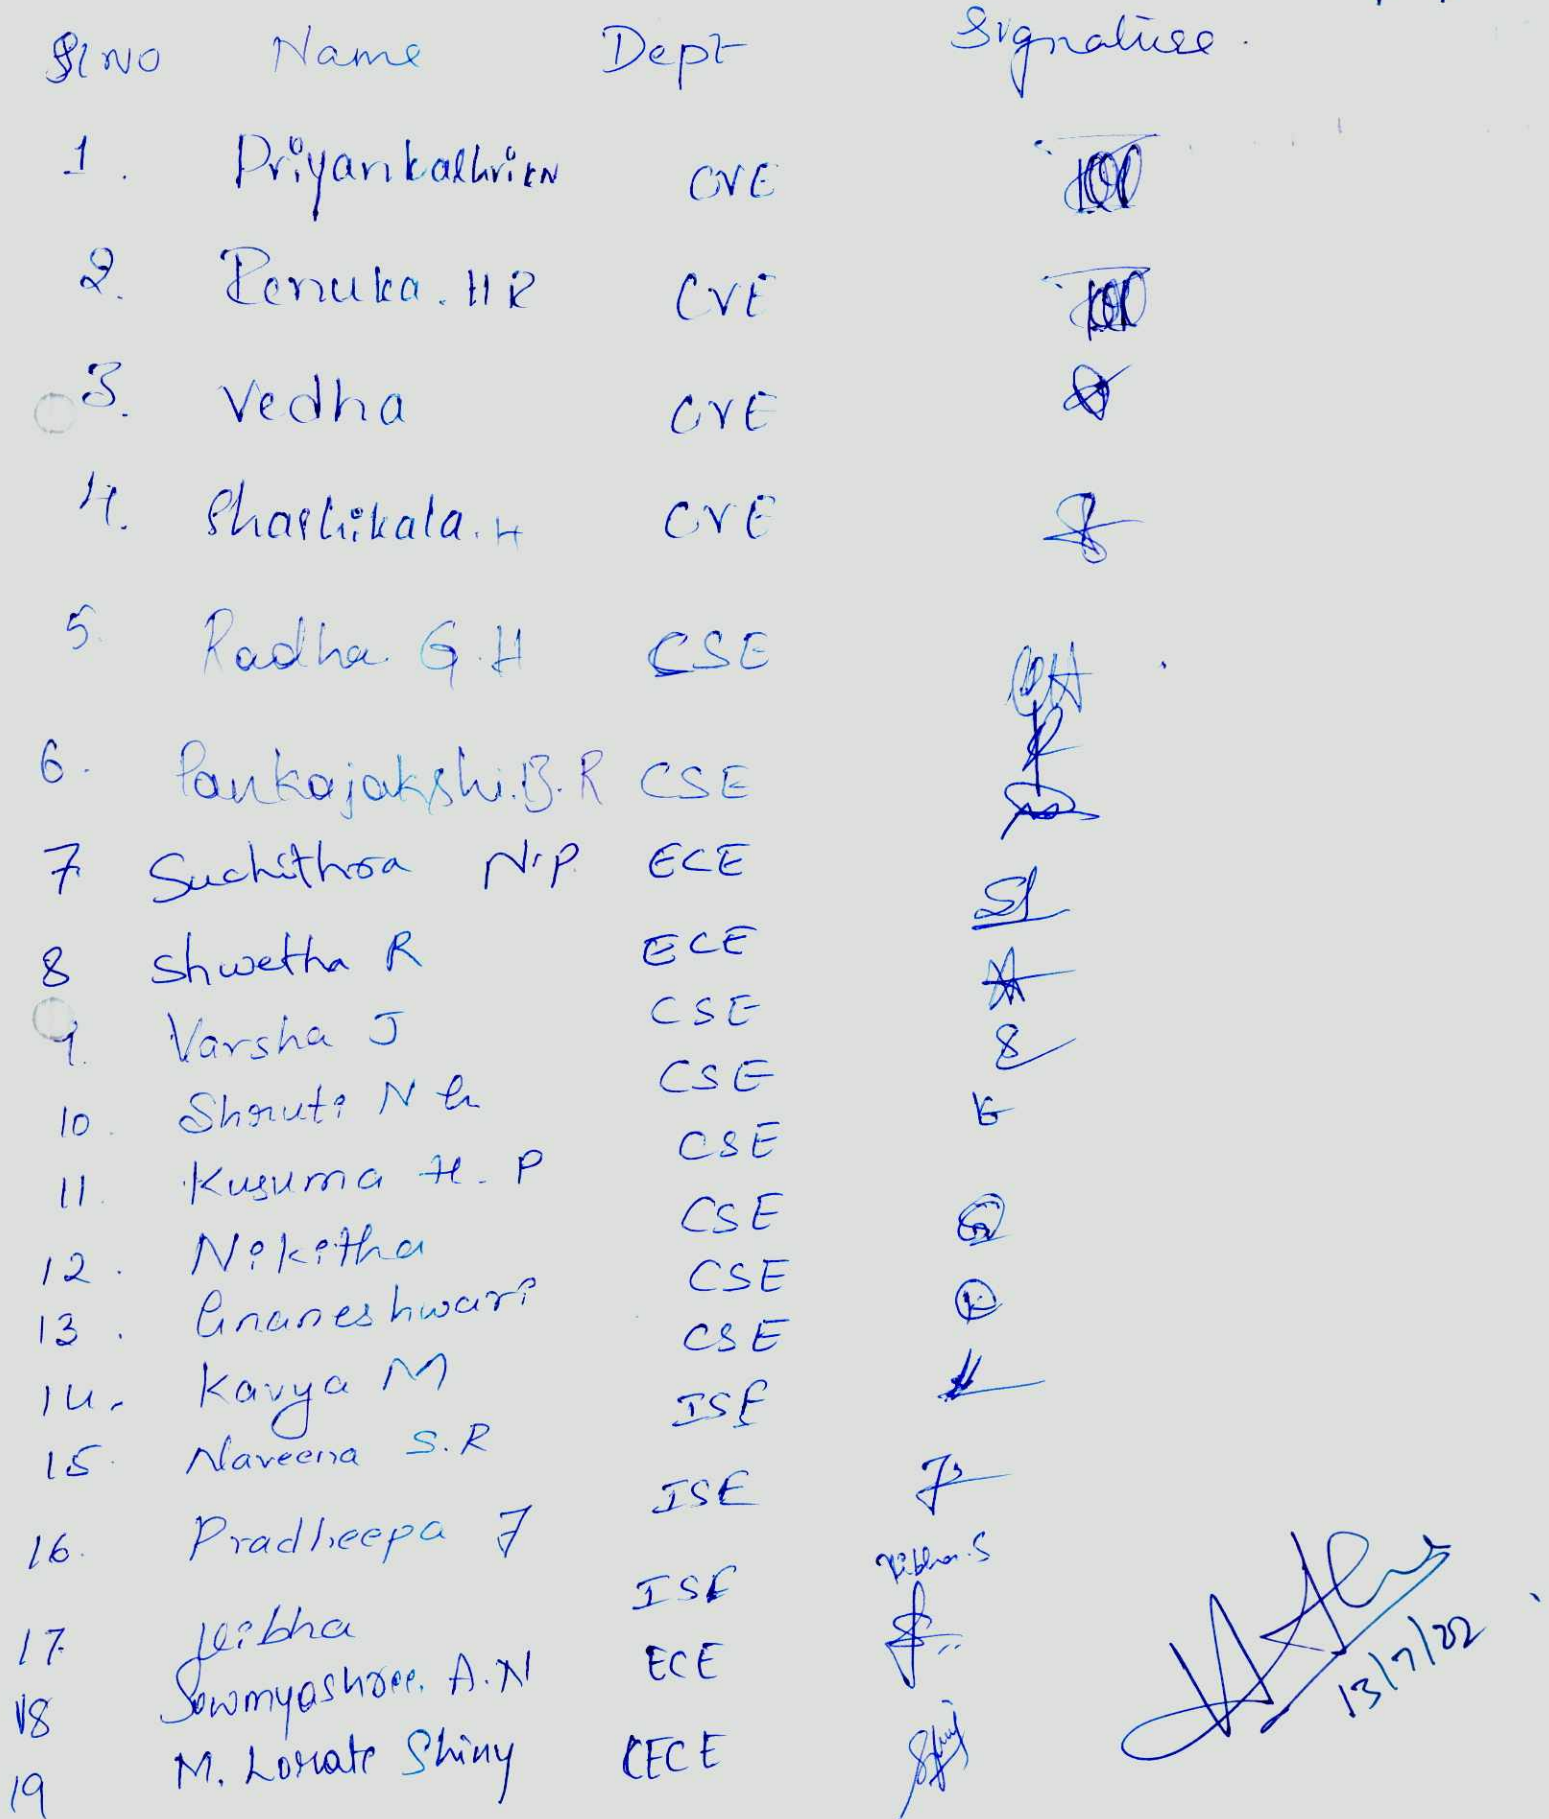 Sl NO Name Dept Signature.
1. CVE
2. Renuka. HR CVE
3. Vedha CVE
4. Shashikala. H CVE
5. Radha G.H CSE
6. Pankajakshi.B.R CSE
7 Suchithra N.P. ECE
8 Shwetha R ECE
9. Varsha J CSE
10. Shruti N CSE
11. Kusuma H. P CSE
12. Nikitha CSE
13. Gnaneshwari CSE
14. Kavya M CSE
15. Naveena S.R ISE
16. Pradheepa J ISE
17. ISE
18 Sowmyashree. A.N ECE
19 M. Shiny ECE
13/7/22